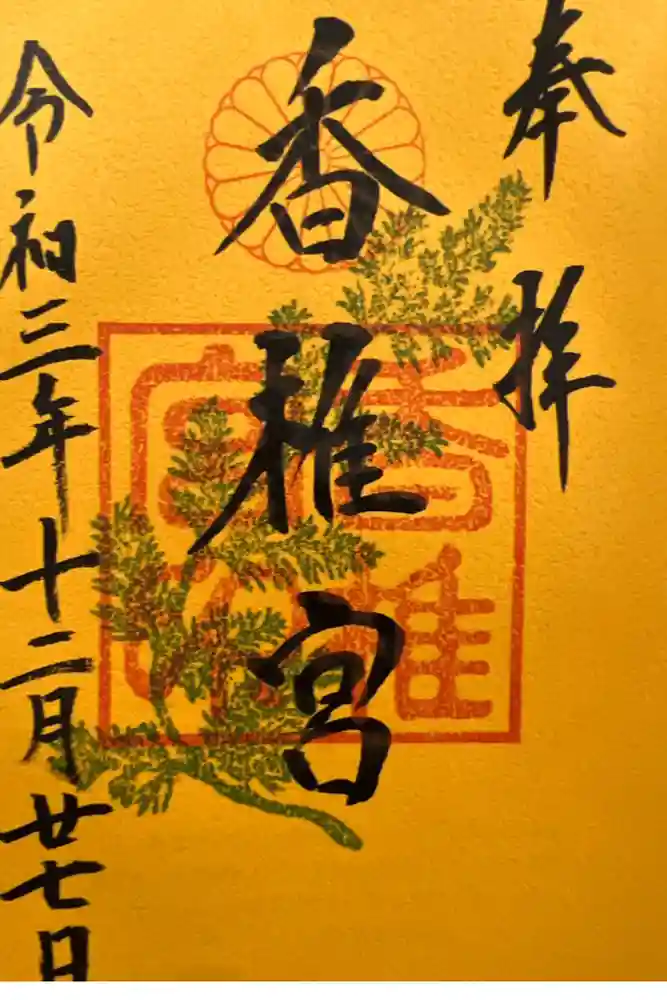 奉拝
香椎宮
令和三年十二月廿七日